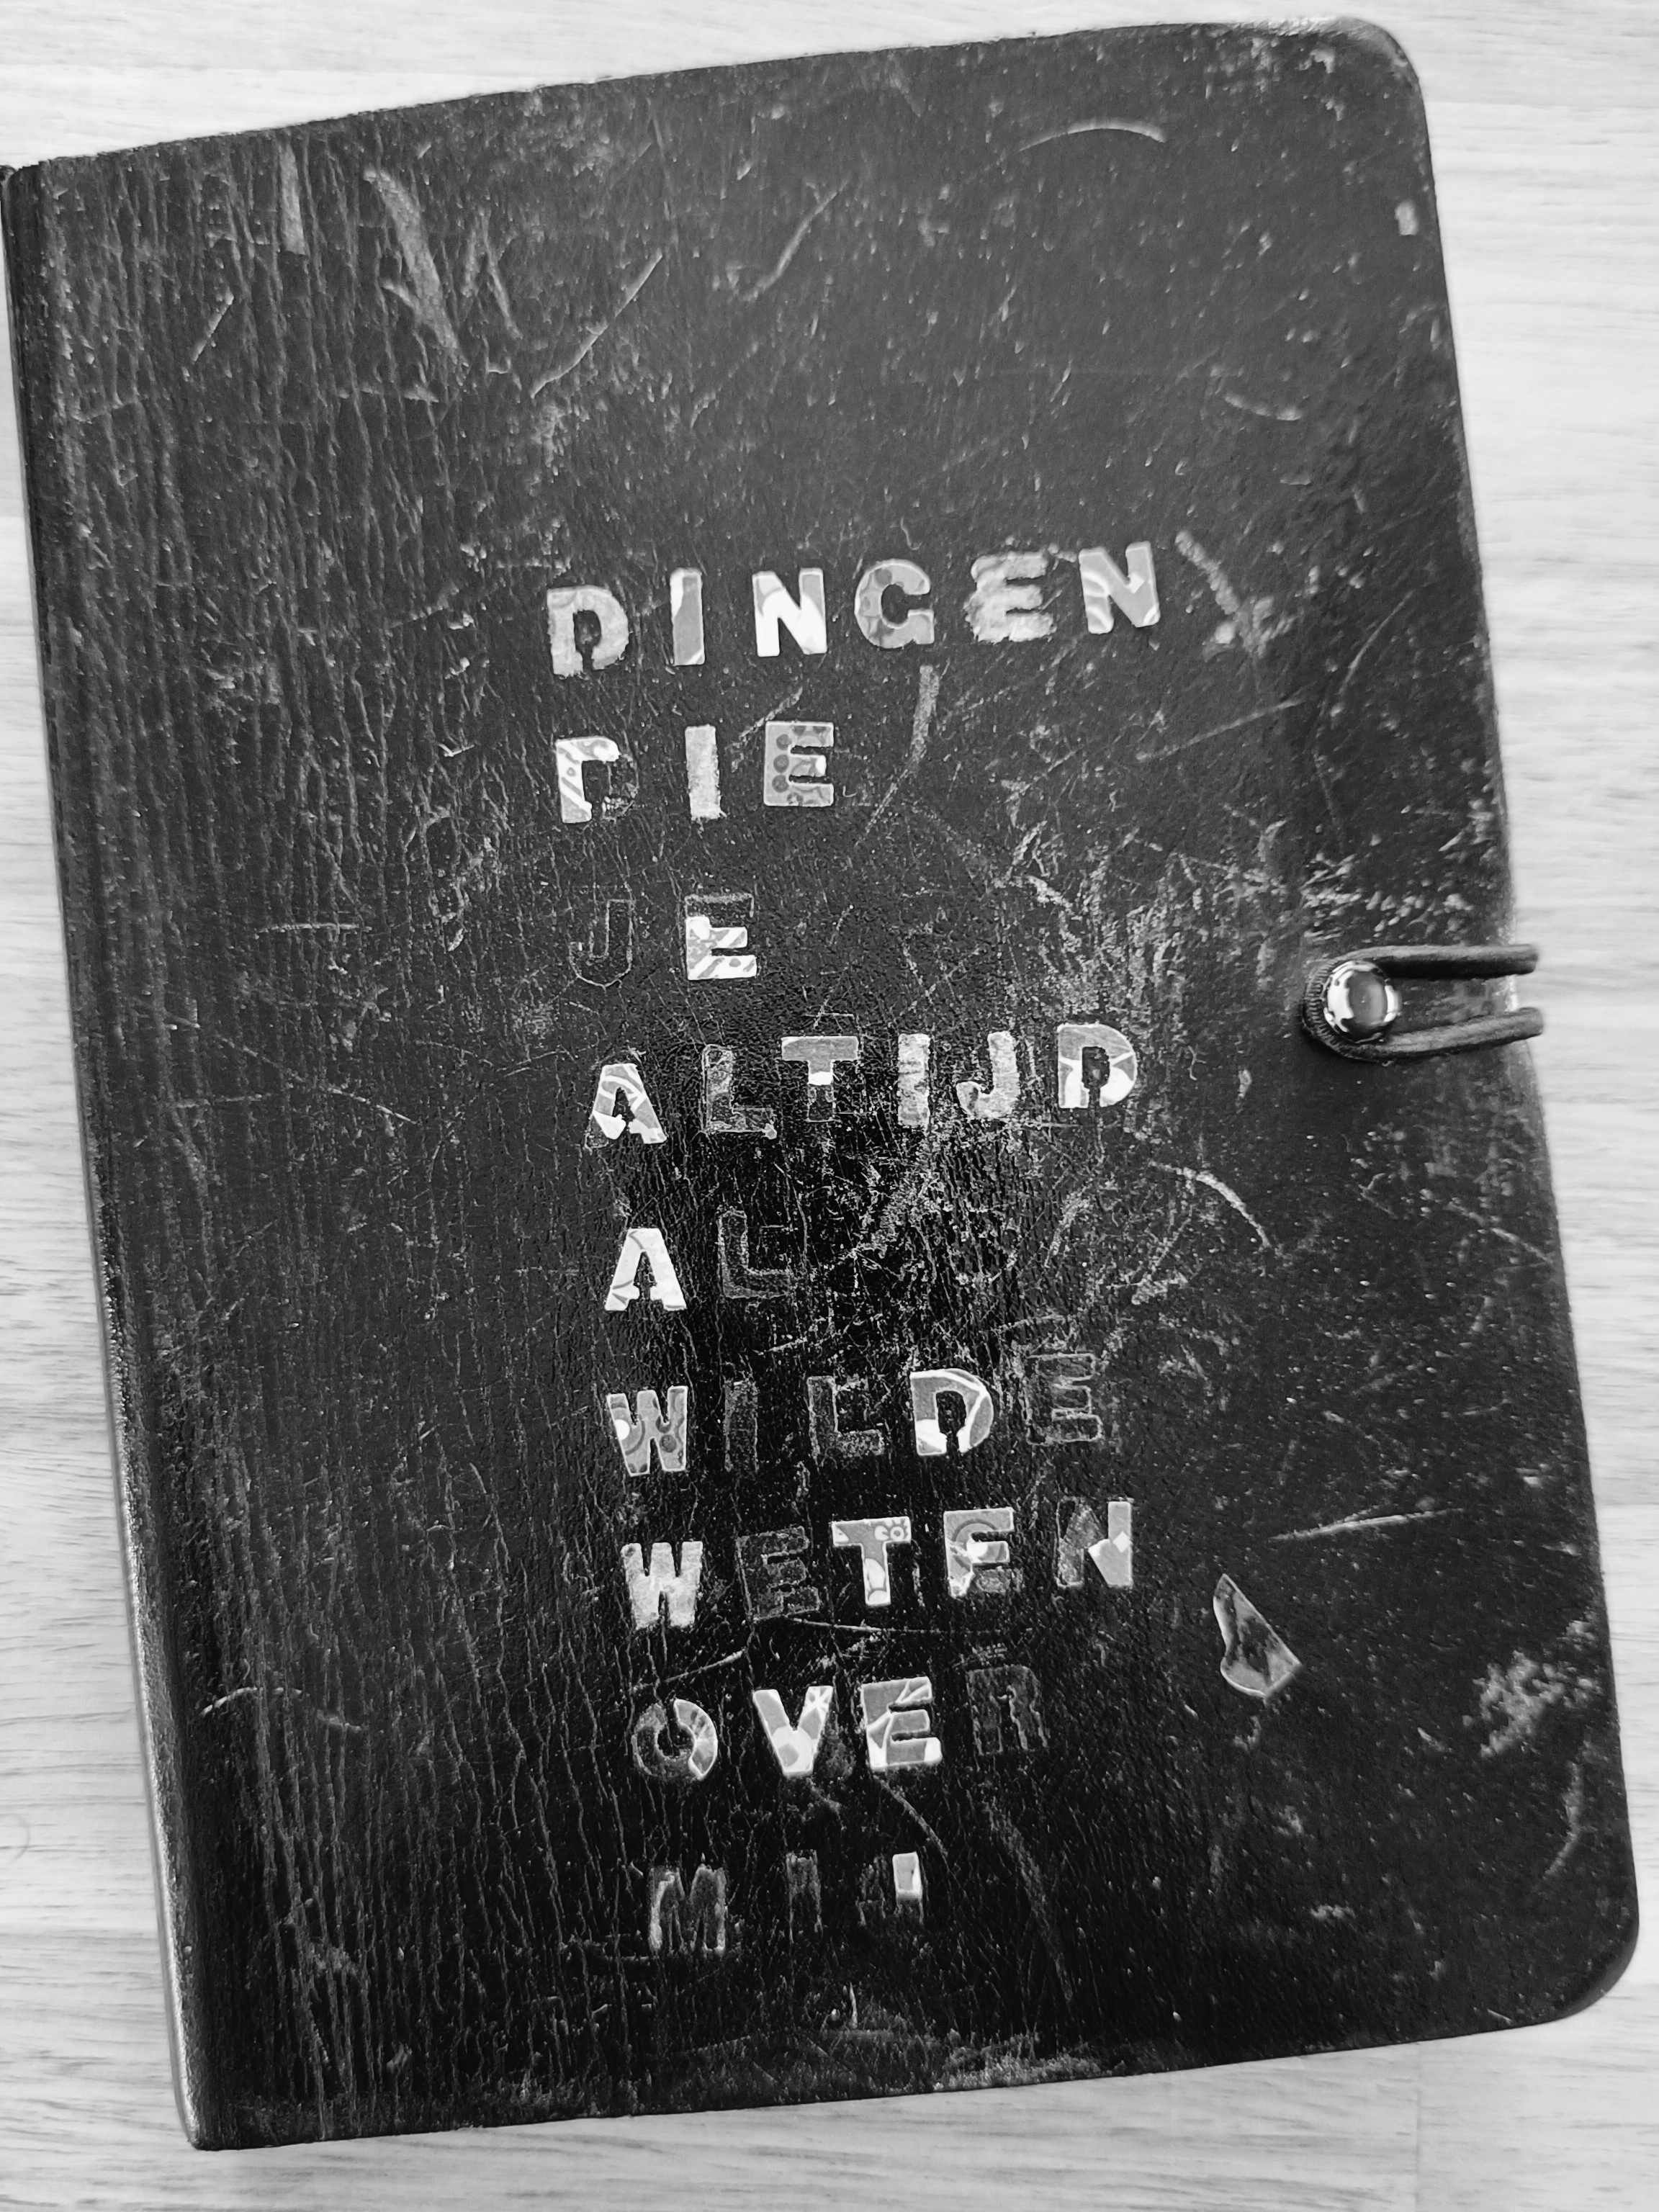 DINGEN
DIE
JE
ALTIJD
AL
WILDE
WETEN
OVER
MIJ